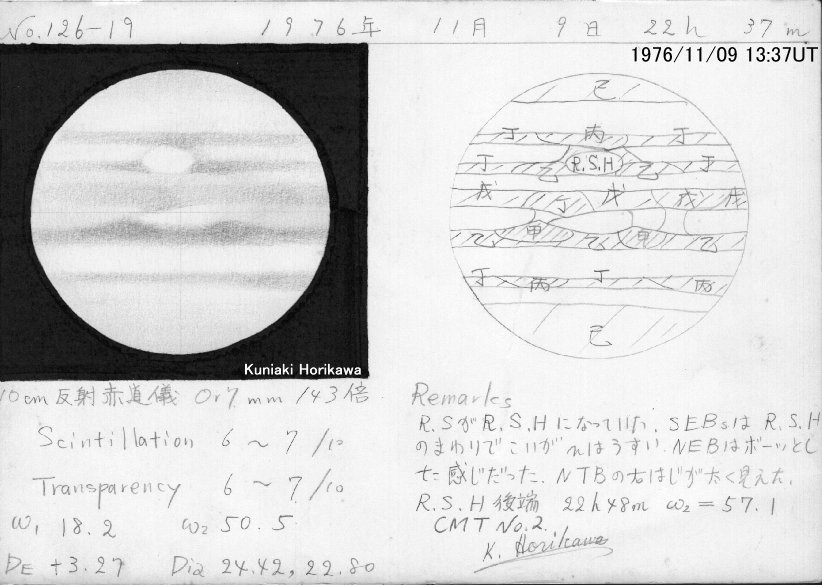 No.126-19 1976年 11月 9日 22h 37m
1976/11/09 13:37UT
己
丁 丙 丁
丁 R.S.H 丁
乙 乙
戊 丁 戊 戊 戊
甲 甲
乙 乙 乙
丁 丙 丁 丙
己
Kuniaki Horikawa
10cm反射赤道儀 Or7mm 143倍
Scintillation 6~7/10
Transparency 6~7/10
ω1 18.2 ω2 50.5
DE +3.27 Dia 24.42, 22.80
Remarks
R.SがR.S.Hになっていた. SEBsはR.S.H
のまわりでこいが はうすい. NEBはボーッとし
た感じだった. NTBの右はじが太く見えた.
R.S.H後端 22h48m ω2=57.1
CMT No.2.
K. Horikawa